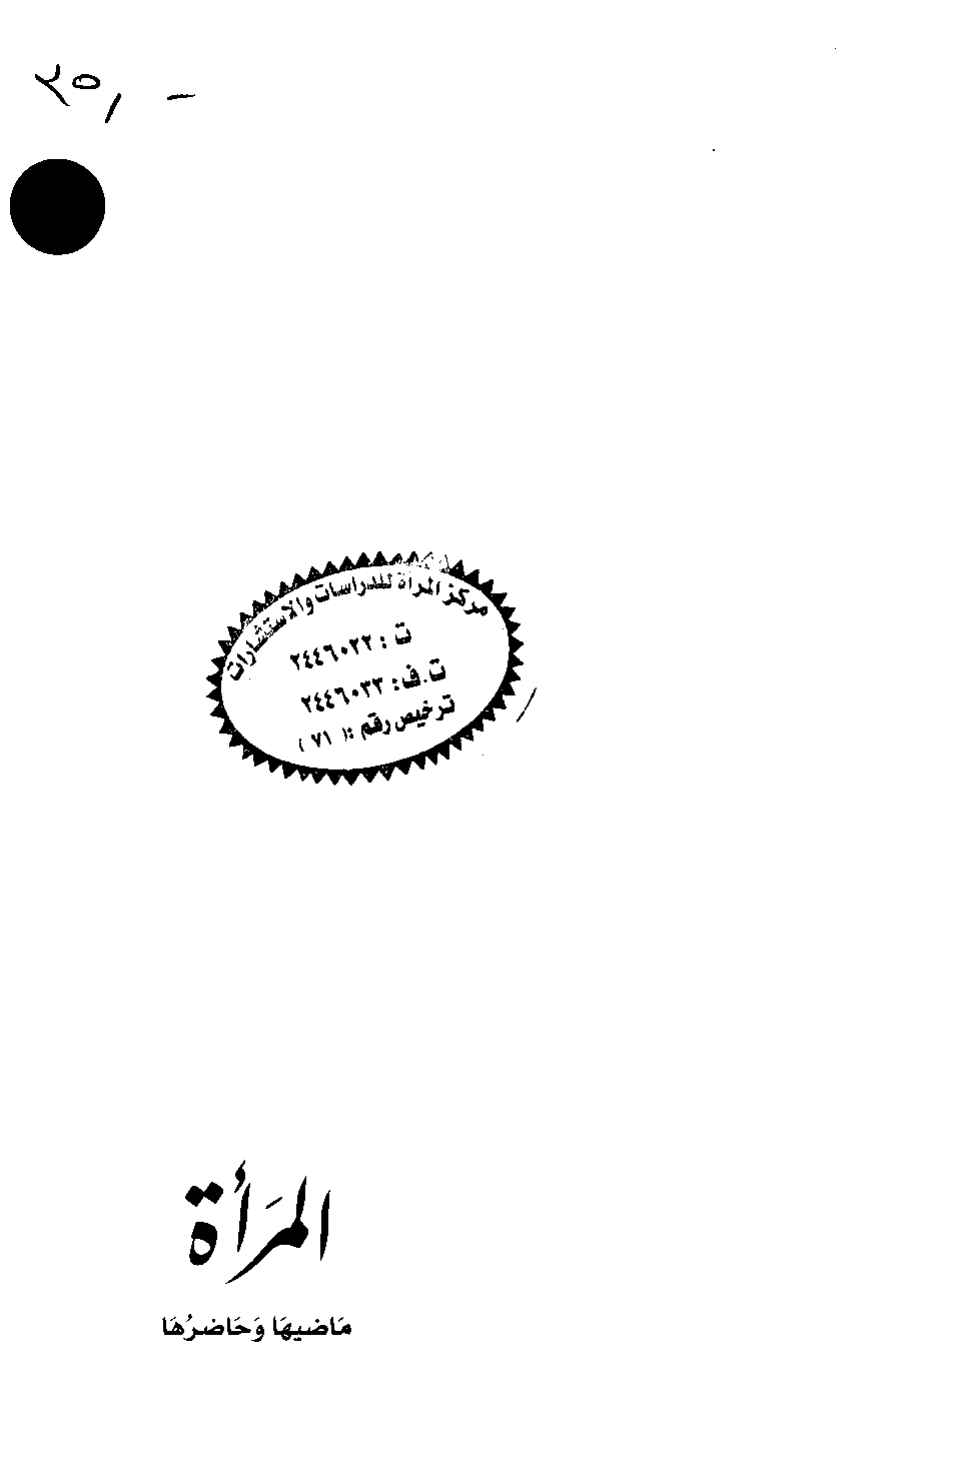 ٢٥,-
مركز المرأة للدراسات والاستشارات
ت : ٢٤٤٦٠٢٢
ت . ف : ٢٤٤٦٠٣٣
ترخيص رقم : ( ٧١ )
المَرأَة
مَاضيهَا وَحَاضرُهَا